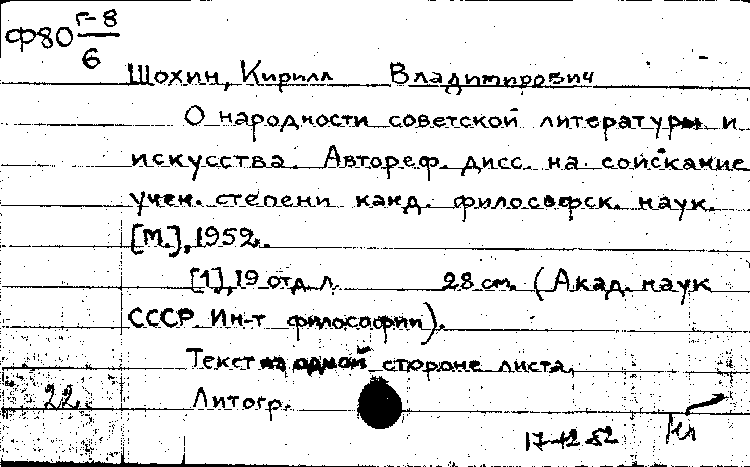 Ф80 Г-8/6
Шохин, Кирилл Владимирович
О народности советской литературы и
искусства. Автореф. дисс. на соискание
учен. степени канд. философск. наук.
[М.], 1952.
[1], 19 отд. л. 28 см. (Акад. наук
СССР. Ин-т философии).
Текст на одной стороне листа.
22. Литогр.
17-12-52